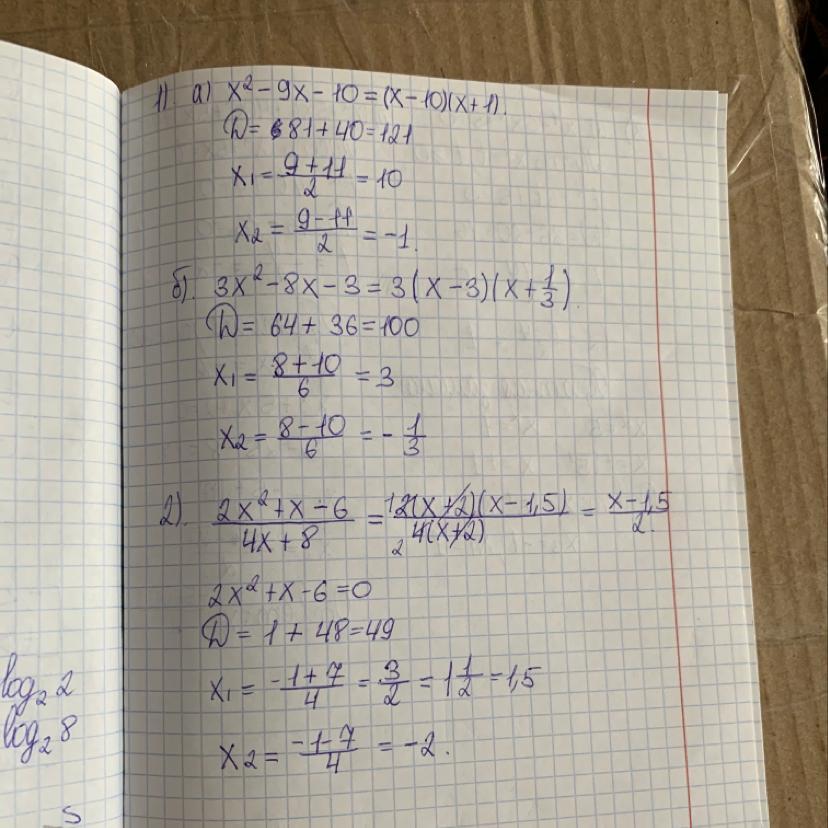 1) а) x² - 9x - 10 = (x-10)(x+1).
D = 81 + 40 = 121
x₁ = (9+11)/2 = 10
x₂ = (9-11)/2 = -1.
б). 3x² - 8x - 3 = 3(x-3)(x+1/3)
D = 64 + 36 = 100
x₁ = (8+10)/6 = 3
x₂ = (8-10)/6 = -1/3
2). (2x²+x-6)/(4x+8) = (2(x+2)(x-1,5))/(4(x+2)) = (x-1,5)/2.
2x² + x - 6 = 0
D = 1 + 48 = 49
x₁ = (-1+7)/4 = 3/2 = 1 1/2 = 1,5
x₂ = (-1-7)/4 = -2.
log₂ 2
log₂ 8
5